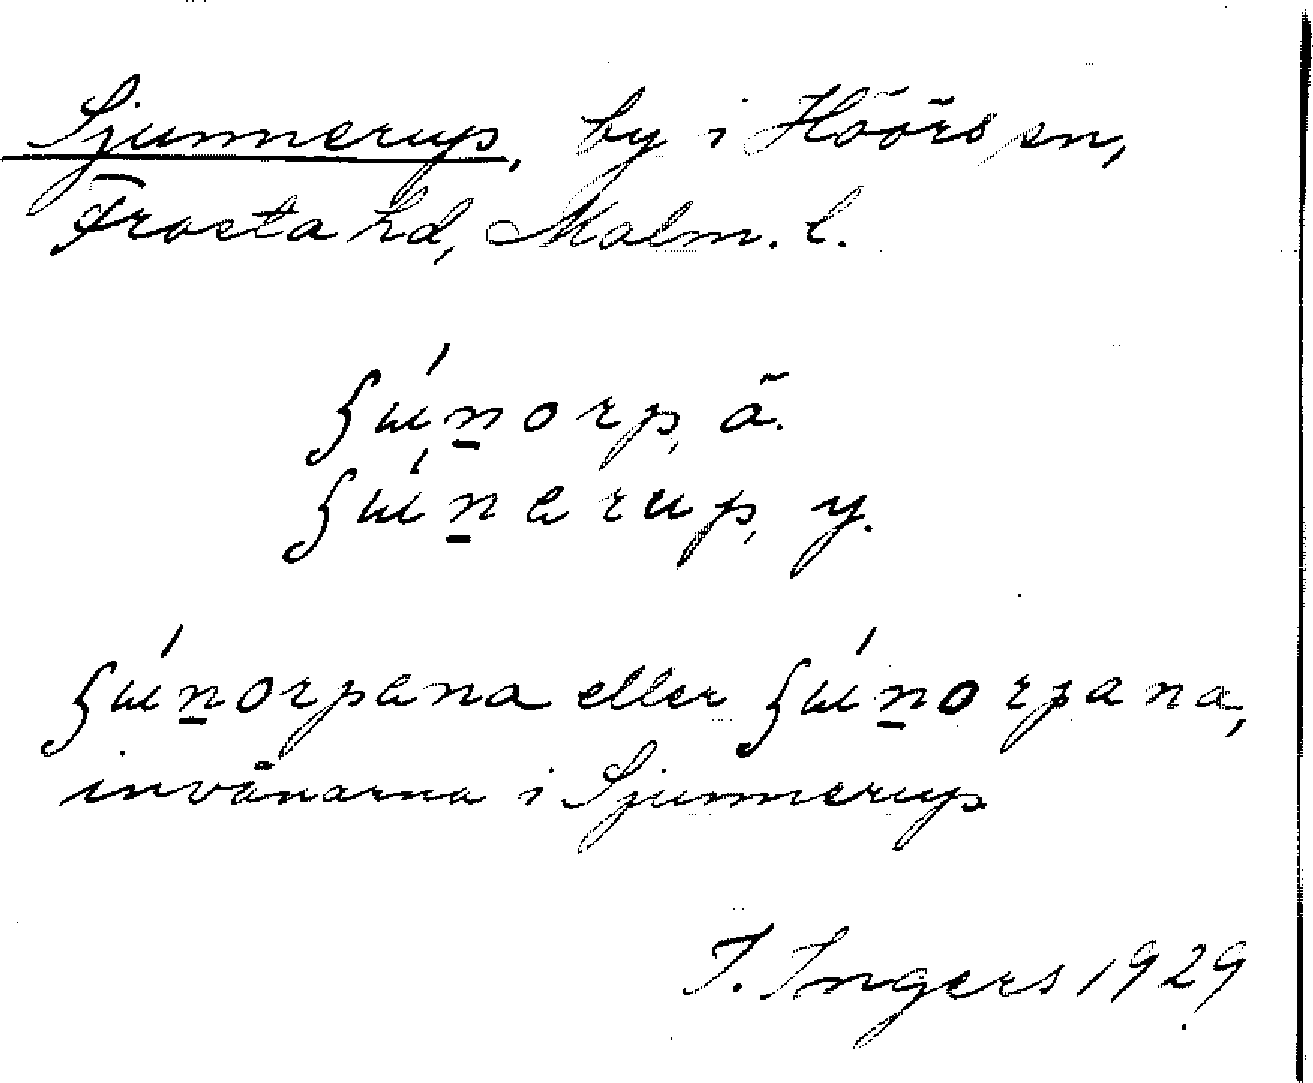 Sjunnerup, by i Höörs sn,
Frosta hd, Malm. l.
ʃɯ́n̲orp, ä.
ʃɯ́n̲erup, y.
ʃɯ́n̲orpana eller ʃɯ́n̲orpana,
invånarna i Sjunnerup
I. Ingers 1929